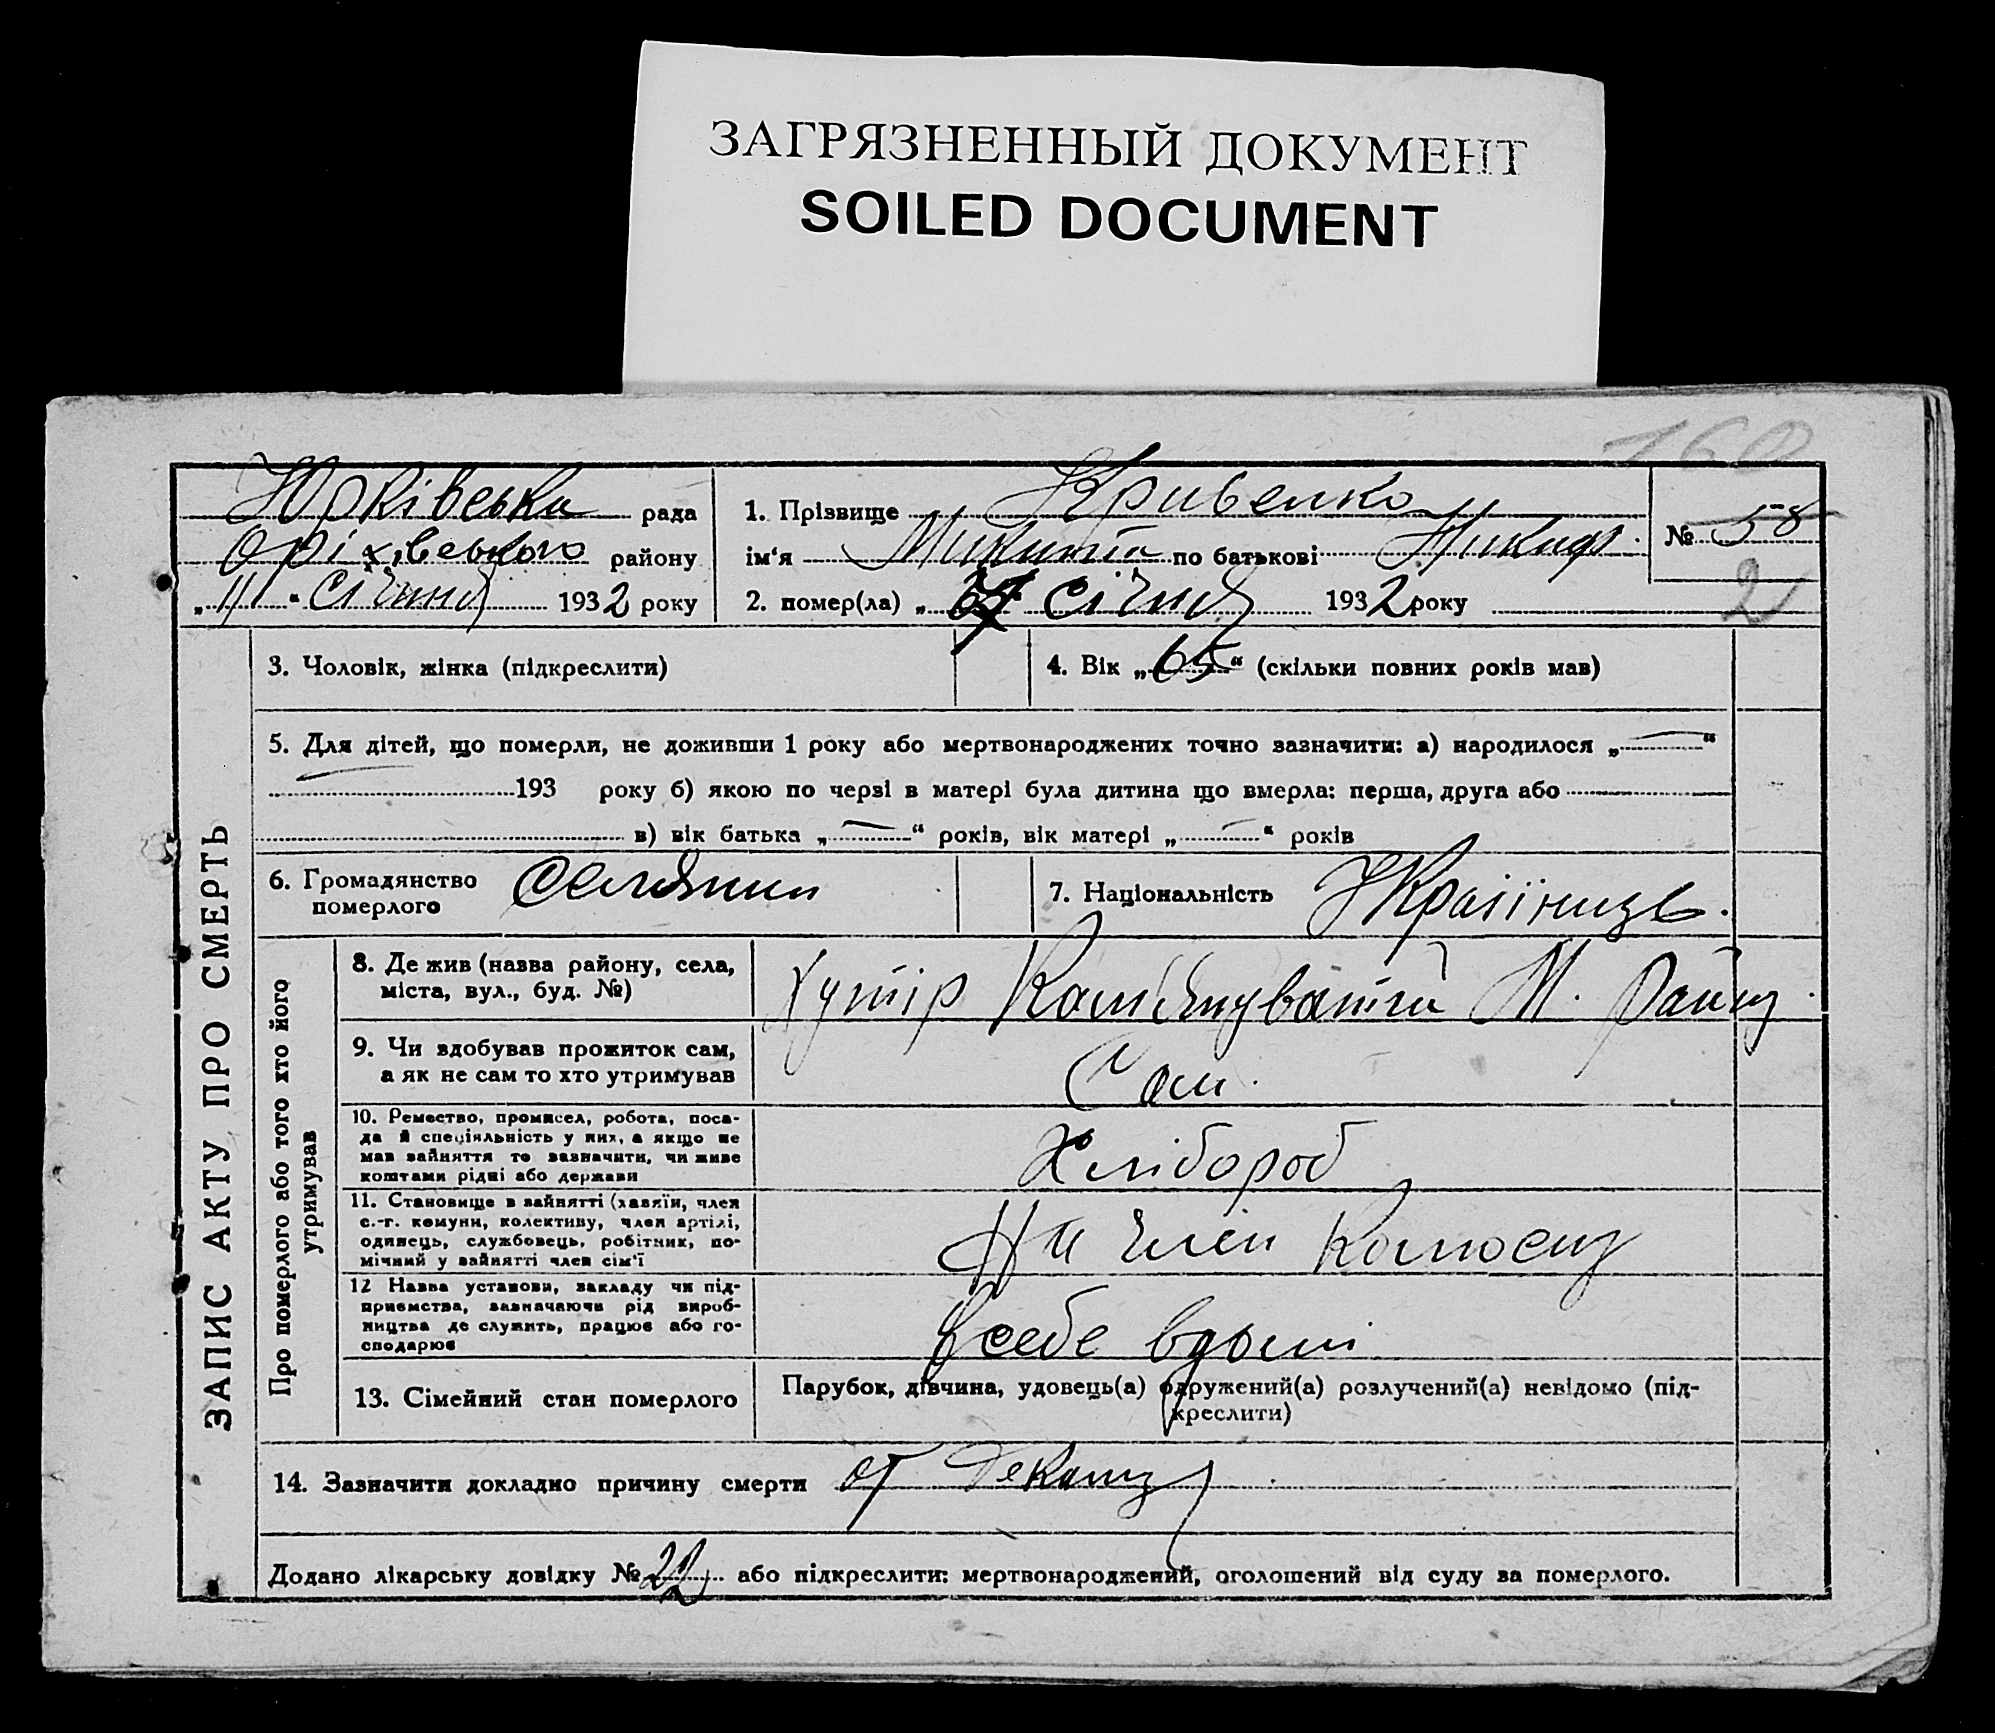 ЗАГРЯЗНЕННЫЙ ДОКУМЕНТ
SOILED DOCUMENT
160
Юрківська рада
Оріхівського району
„11“ січня 1932 року
1. Прізвище Кривенко
ім‘я Микита по батькові
2. помер(ла) „ “ січня 1932 року
№ 58
2
ЗАПИС АКТУ ПРО СМЕРТЬ
3. Чоловік, жінка (підкреслити)
4. Вік „65“ (скільки повних років мав)
5. Для дітей, що померли, не доживши 1 року або мертвонароджених точно зазначити: а) народилося „—“
193 року б) якою по черзі в матері була дитина що вмерла: перша, друга або
в) вік батька „—“ років, вік матері „—“ років
6. Громадянство
померлого
селянин
7. Національність Українець.
Про померлого або того хто його
утримував
8. Де жив (назва району, села,
міста, вул., буд. №)
Хутір М.
9. Чи здобував прожиток сам,
а як не сам то хто утримував
Сам.
10. Ремество, промисел, робота, поса-
да й спеціяльність у них, а якщо не
мав зайняття то зазначити, чи живе
коштами рідні або держави
Хлібороб
11. Становище в зайнятті (хазяїн, член
с.-г. комуни, колективу, член артілі,
одинець, службовець, робітник, по-
мічний у зайнятті член сім‘ї
Ни член
12 Назва установи, закладу чи під-
приємства, зазначаючи рід вироб-
ництва де служить, працює або го-
сподарює
у себе вдомі
13. Сімейний стан померлого
Парубок, дівчина, удовець(а) одружений(а) розлучений(а) невідомо (під-
креслити)
14. Зазначити докладно причину смерти от
Додано лікарську довідку № 22 або підкреслити: мертвонароджений, оголошений від суду за померлого.